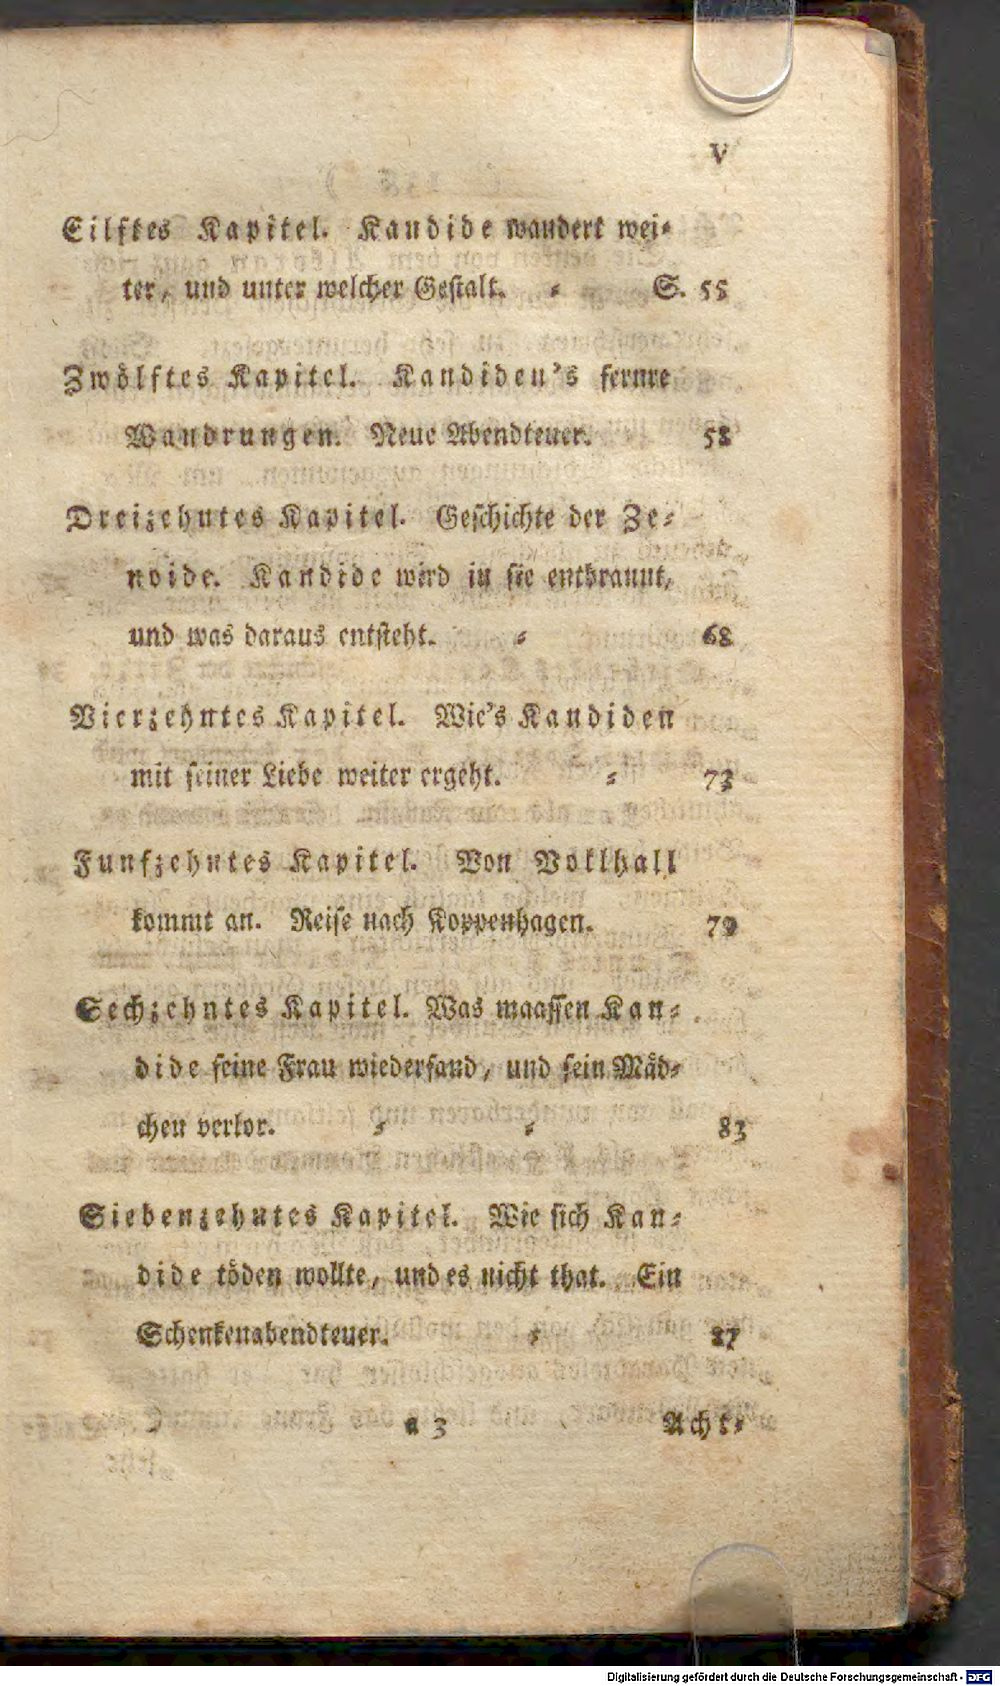 V
Eilftes Kapitel. Kandide wandert wei⸗
ter, und unter welcher Gestalt. ⸗ S. 55
Zwölftes Kapitel. Kandiden's fernre
Wandrungen. Neue Abendteuer. 58
Dreizehntes Kapitel. Geschichte der Ze⸗
noide. Kandide wird in sie entbrannt,
und was daraus entsteht. ⸗ 68
Vierzehntes Kapitel. Wie's Kandiden
mit seiner Liebe weiter ergeht. ⸗ 73
Funfzehntes Kapitel. Von Voklhall
kommt an. Reise nach Koppenhagen. 79
Sechzehntes Kapitel. Was maassen Kan⸗
dide seine Frau wiederfand, und sein Mäd⸗
chen verlor. ⸗ ⸗ 83
Siebenzehntes Kapitel. Wie sich Kan⸗
dide töden wollte, und es nicht that. Ein
Schenkenabendteuer. ⸗ 87
a 3 Acht⸗
Digitalisierung gefördert durch die Deutsche Forschungsgemeinschaft - DFG